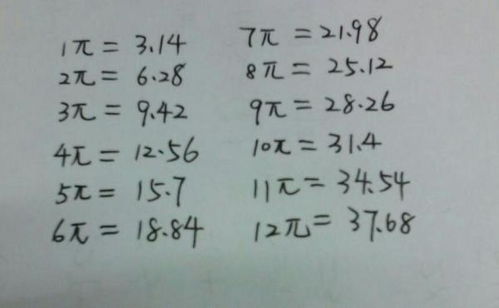 1π = 3.14
2π = 6.28
3π = 9.42
4π = 12.56
5π = 15.7
6π = 18.84
7π = 21.98
8π = 25.12
9π = 28.26
10π = 31.4
11π = 34.54
12π = 37.68